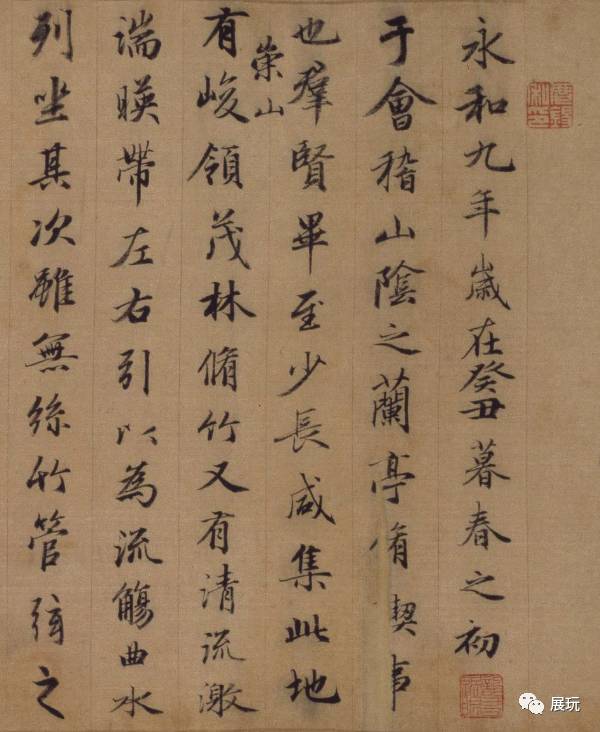 永和九年歲在癸丑暮春之初
于會稽山陰之蘭亭脩禊事
也羣賢畢至少長咸集此地
崇山
有峻領茂林脩竹又有清流激
湍暎帶左右引以為流觴曲水
列坐其次雖無絲竹管弦之
展玩